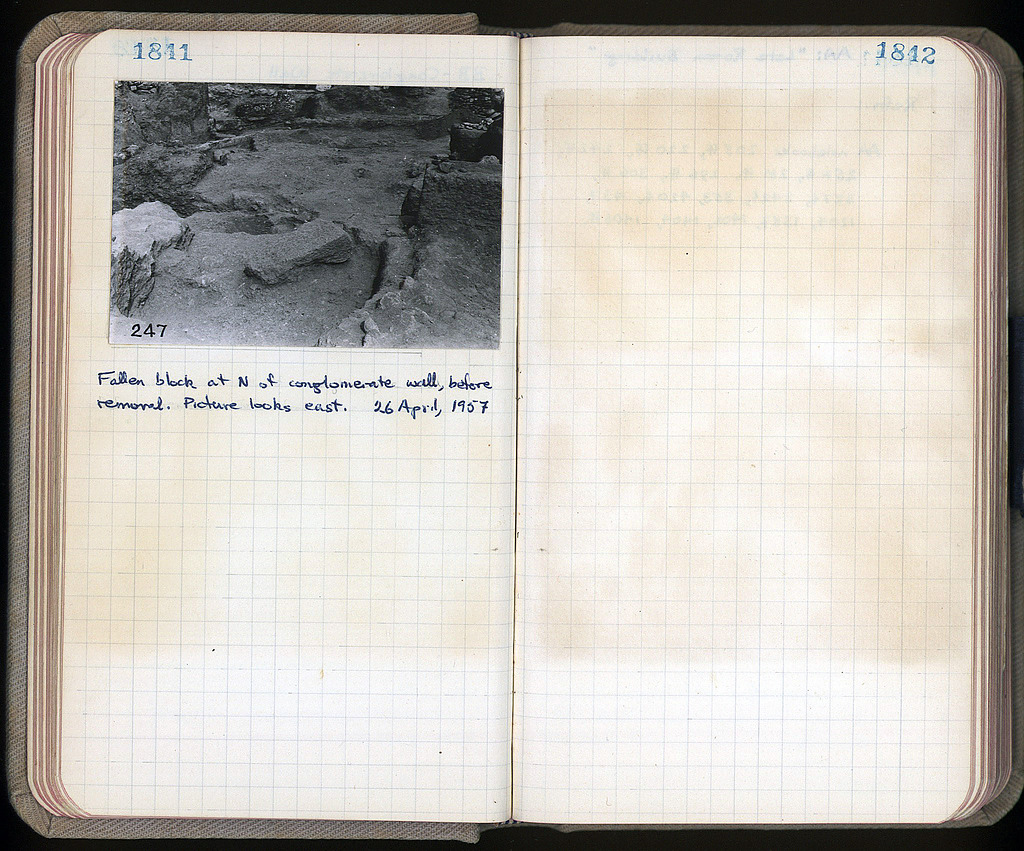 1841
1842
247
Fallen block at N of conglomerate wall, before
removal. Picture looks east. 26 April, 1957